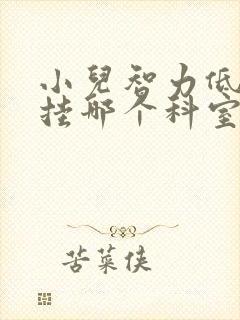 小兒智力低
挂哪个科室
苦菜侠